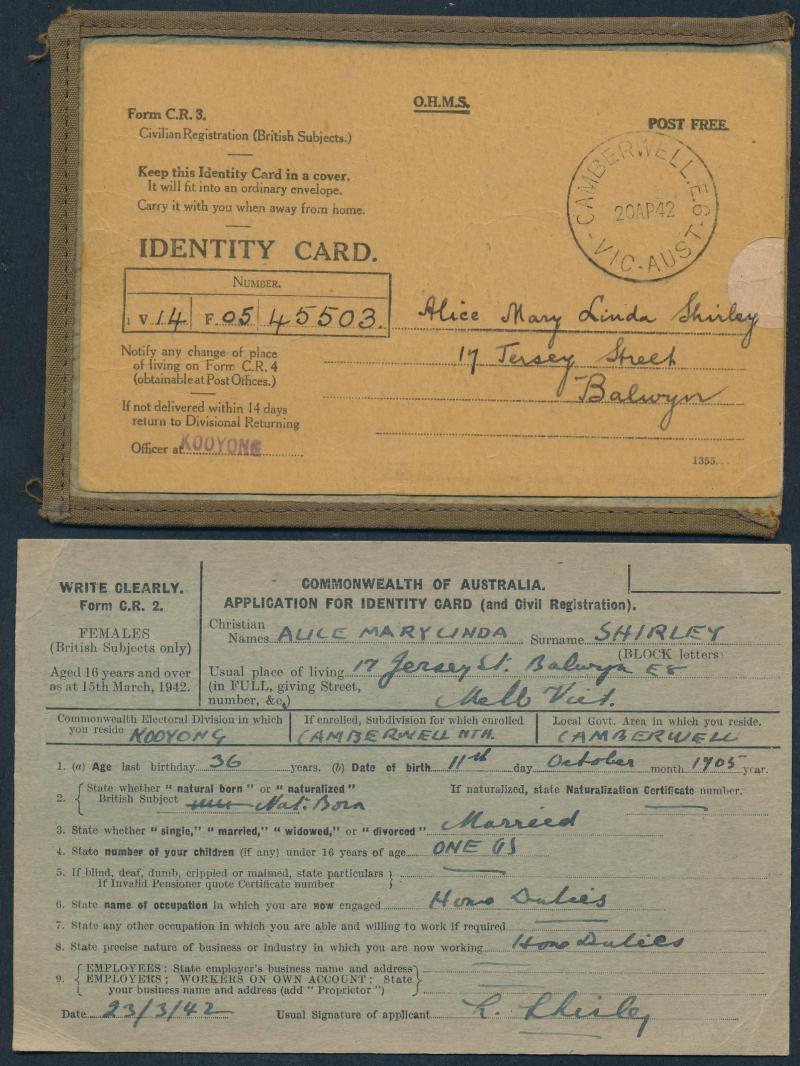 O.H.M.S.
Form C.R. 3.
POST FREE.
Civilian Registration (British Subjects.)
CAMBERWELL.E.6
20AP42
VIC-AUST
Keep this Identity Card in a cover.
It will fit into an ordinary envelope.
Carry it with you when away from home.
IDENTITY CARD.
NUMBER.
V 14 F 05 45503.
Alice Mary Linda Shirley
17 Jersey Street
Balwyn
Notify any change of place
of living on Form C.R. 4
(obtainable at Post Offices.)
If not delivered within 14 days
return to Divisional Returning
Officer at KOOYONG
1355
WRITE CLEARLY.
Form C.R. 2.
FEMALES
(British Subjects only)
Aged 16 years and over
as at 15th March, 1942.
COMMONWEALTH OF AUSTRALIA.
APPLICATION FOR IDENTITY CARD (and Civil Registration).
Christian
Names ALICE MARY LINDA Surname SHIRLEY
(BLOCK letters)
Usual place of living 17 Jersey St. Balwyn E8
(in FULL, giving Street,
number, &c.) Melb Vict.
Commonwealth Electoral Division in which
you reside KOOYONG
If enrolled, Subdivision for which enrolled
CAMBERWELL NTH.
Local Govt. Area in which you reside.
CAMBERWELL
1. (a) Age last birthday 36 years. (b) Date of birth 11th day October month 1905 year.
2. State whether "natural born" or "naturalized"
British Subject Nat. Born
If naturalized, state Naturalization Certificate number.
3. State whether "single," "married," "widowed," or "divorced" Married
4. State number of your children (if any) under 16 years of age ONE
5. If blind, deaf, dumb, crippled or maimed, state particulars
If Invalid Pensioner quote Certificate number
6. State name of occupation in which you are now engaged Home Duties
7. State any other occupation in which you are able and willing to work if required
8. State precise nature of business or industry in which you are now working Home Duties
9. EMPLOYEES: State employer's business name and address
EMPLOYERS; WORKERS ON OWN ACCOUNT: State
your business name and address (add "Proprietor")
Date 23/3/42 Usual Signature of applicant L. Shirley